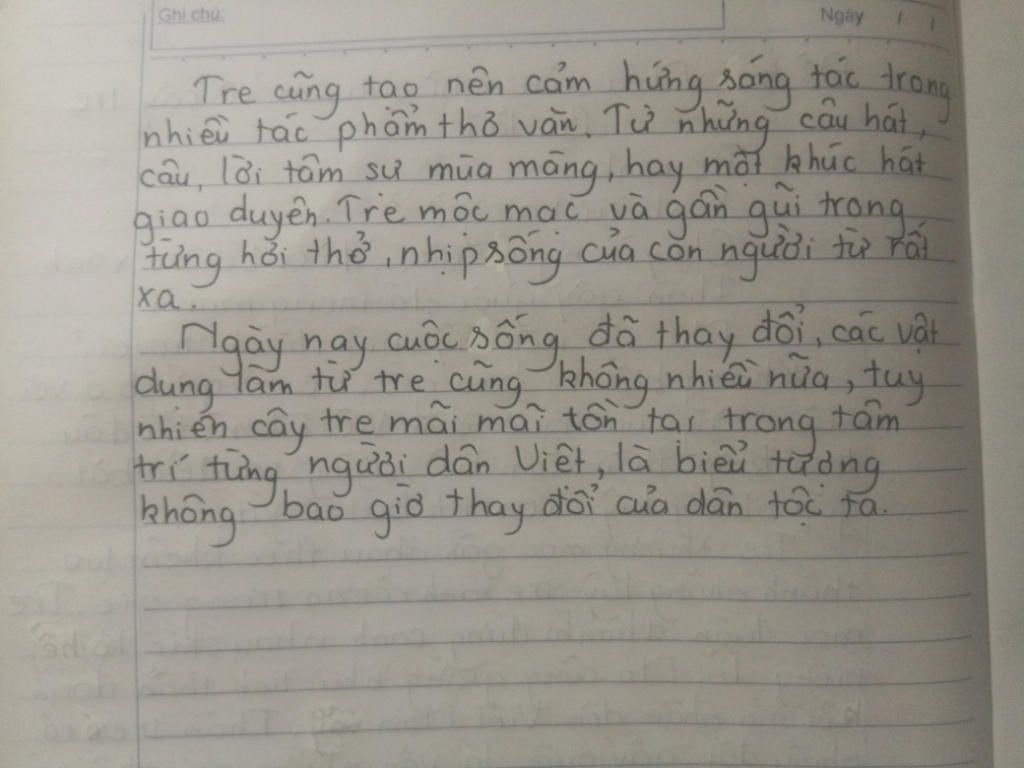 Ghi chú:
Ngày / /
Tre cũng tạo nên cảm hứng sáng tác trong
nhiều tác phẩm thơ văn. Từ những câu hát,
câu, lời tâm sự mùa màng, hay một khúc hát
giao duyên. Tre mộc mạc và gần gũi trong
từng hơi thở, nhịp sống của con người từ rất
xa.
Ngày nay cuộc sống đã thay đổi, các vật
dụng làm từ tre cũng không nhiều nữa, tuy
nhiên cây tre mãi mãi tồn tại trong tâm
trí từng người dân Việt, là biểu tượng
không bao giờ thay đổi của dân tộc ta.